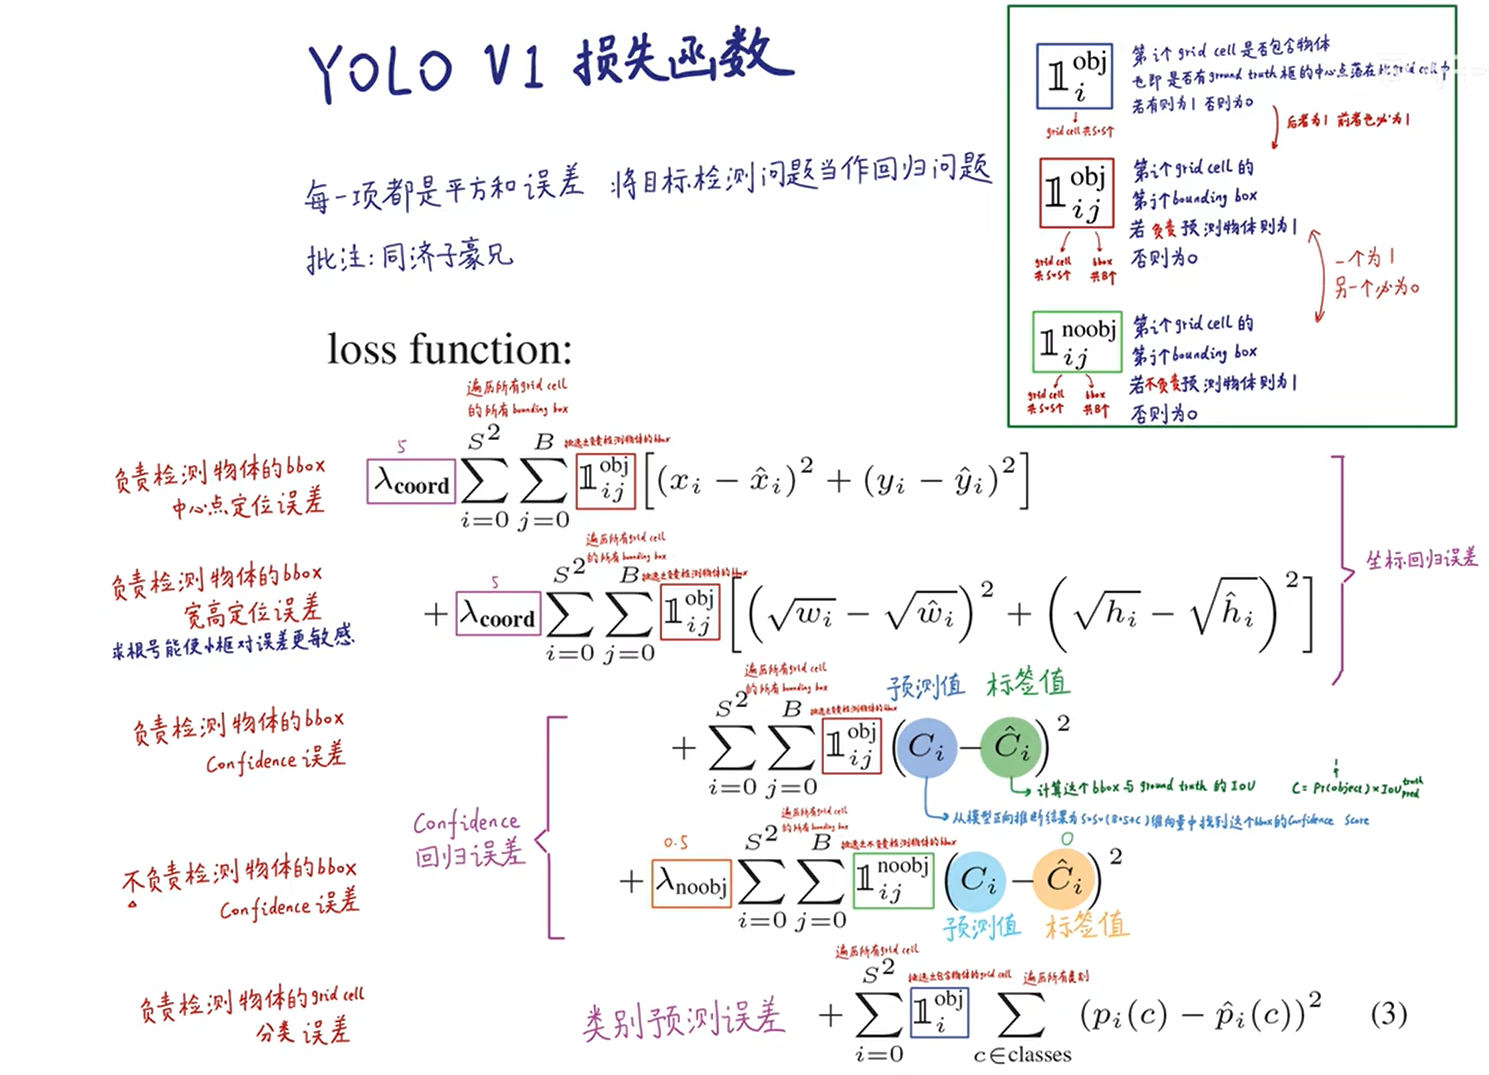 YOLO V1 损失函数
每一项都是平方和误差 将目标检测问题当作回归问题
批注:同济子豪兄
𝟙 obj i
grid cell 共S*S个
第i个grid cell是否包含物体
也即是否有ground truth框的中心点落在此grid cell中
若有则为1 否则为0
后者为1 前者也必为1
𝟙 obj ij
grid cell 共S*S个
bbox 共B个
第i个grid cell的
第j个bounding box
若负责预测物体则为1
否则为0
一个为1
另一个必为0
𝟙 noobj ij
grid cell 共S*S个
bbox 共B个
第i个grid cell的
第j个bounding box
若不负责预测物体则为1
否则为0
loss function:
遍历所有grid cell
的所有bounding box
负责检测物体的bbox
中心点定位误差
5
挑选出负责检测物体的bbox
λcoord ∑_{i=0}^{S^2} ∑_{j=0}^{B} 𝟙_{ij}^{obj} [(x_i − x̂_i)^2 + (y_i − ŷ_i)^2]
坐标回归误差
遍历所有grid cell
的所有bounding box
负责检测物体的bbox
宽高定位误差
求根号能使小框对误差更敏感
5
挑选出负责检测物体的bbox
+ λcoord ∑_{i=0}^{S^2} ∑_{j=0}^{B} 𝟙_{ij}^{obj} [(√w_i − √ŵ_i)^2 + (√h_i − √ĥ_i)^2]
遍历所有grid cell
的所有bounding box
预测值 标签值
负责检测物体的bbox
Confidence 误差
挑选出负责检测物体的bbox
+ ∑_{i=0}^{S^2} ∑_{j=0}^{B} 𝟙_{ij}^{obj} (C_i − Ĉ_i)^2
计算这个bbox与ground truth的IOU
C = Pr(object) × IOU truth pred
1
从模型正向推断结果为S*S*(B*5+C)维向量中找到这个bbox的Confidence Score
Confidence
回归误差
遍历所有grid cell
的所有bounding box
不负责检测物体的bbox
Confidence 误差
0.5
挑选出不负责检测物体的bbox
0
+ λnoobj ∑_{i=0}^{S^2} ∑_{j=0}^{B} 𝟙_{ij}^{noobj} (C_i − Ĉ_i)^2
预测值 标签值
遍历所有grid cell
挑选出包含物体的grid cell 遍历所有类别
负责检测物体的grid cell
分类误差
类别预测误差
+ ∑_{i=0}^{S^2} 𝟙_{i}^{obj} ∑_{c∈classes} (p_i(c) − p̂_i(c))^2 (3)